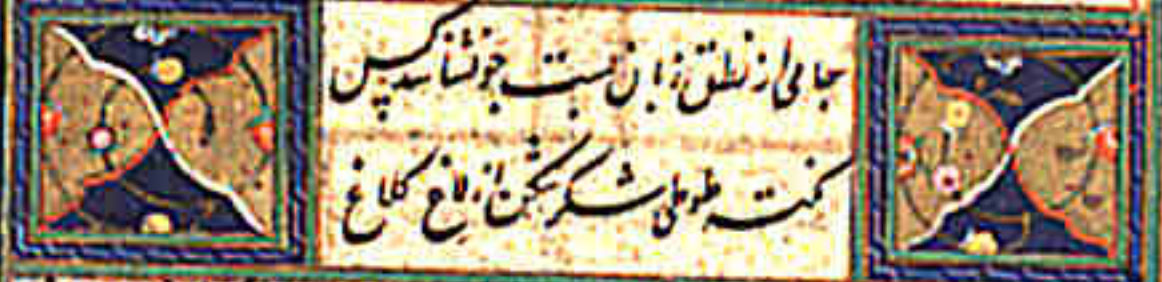 جامی از نطق زبان بست چو نشناسد کس
نکته طوطی شکر شکن از لاغ کلاغ